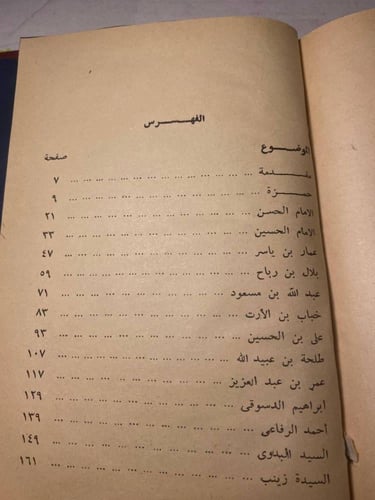 الفهـــرس
الموضـــوع صفحة
مقدمة ... ... ... ... ... ... ... ... ... ... ... ٧
حمـــزة ... ... ... ... ... ... ... ... ... ... ... ٩
الامام الحسن ... ... ... ... ... ... ... ... ... ... ٢١
الامام الحسين ... ... ... ... ... ... ... ... ... ... ٣٣
عمار بن ياسر ... ... ... ... ... ... ... ... ... ... ٤٧
بلال بن رباح ... ... ... ... ... ... ... ... ... ... ٥٩
عبد الله بن مسعود ... ... ... ... ... ... ... ... ... ٧١
خباب بن الأرت ... ... ... ... ... ... ... ... ... ٨٣
على بن الحسين ... ... ... ... ... ... ... ... ... ٩٣
طلحة بن عبيد الله ... ... ... ... ... ... ... ... ١٠٧
عمر بن عبد العزيز ... ... ... ... ... ... ... ... ١١٧
ابراهيم الدسوقى ... ... ... ... ... ... ... ... ... ١٢٩
أحمد الرفاعى ... ... ... ... ... ... ... ... ... ١٣٩
السيد البدوى ... ... ... ... ... ... ... ... ... ١٤٩
السيدة زينب ... ... ... ... ... ... ... ... ... ١٦١